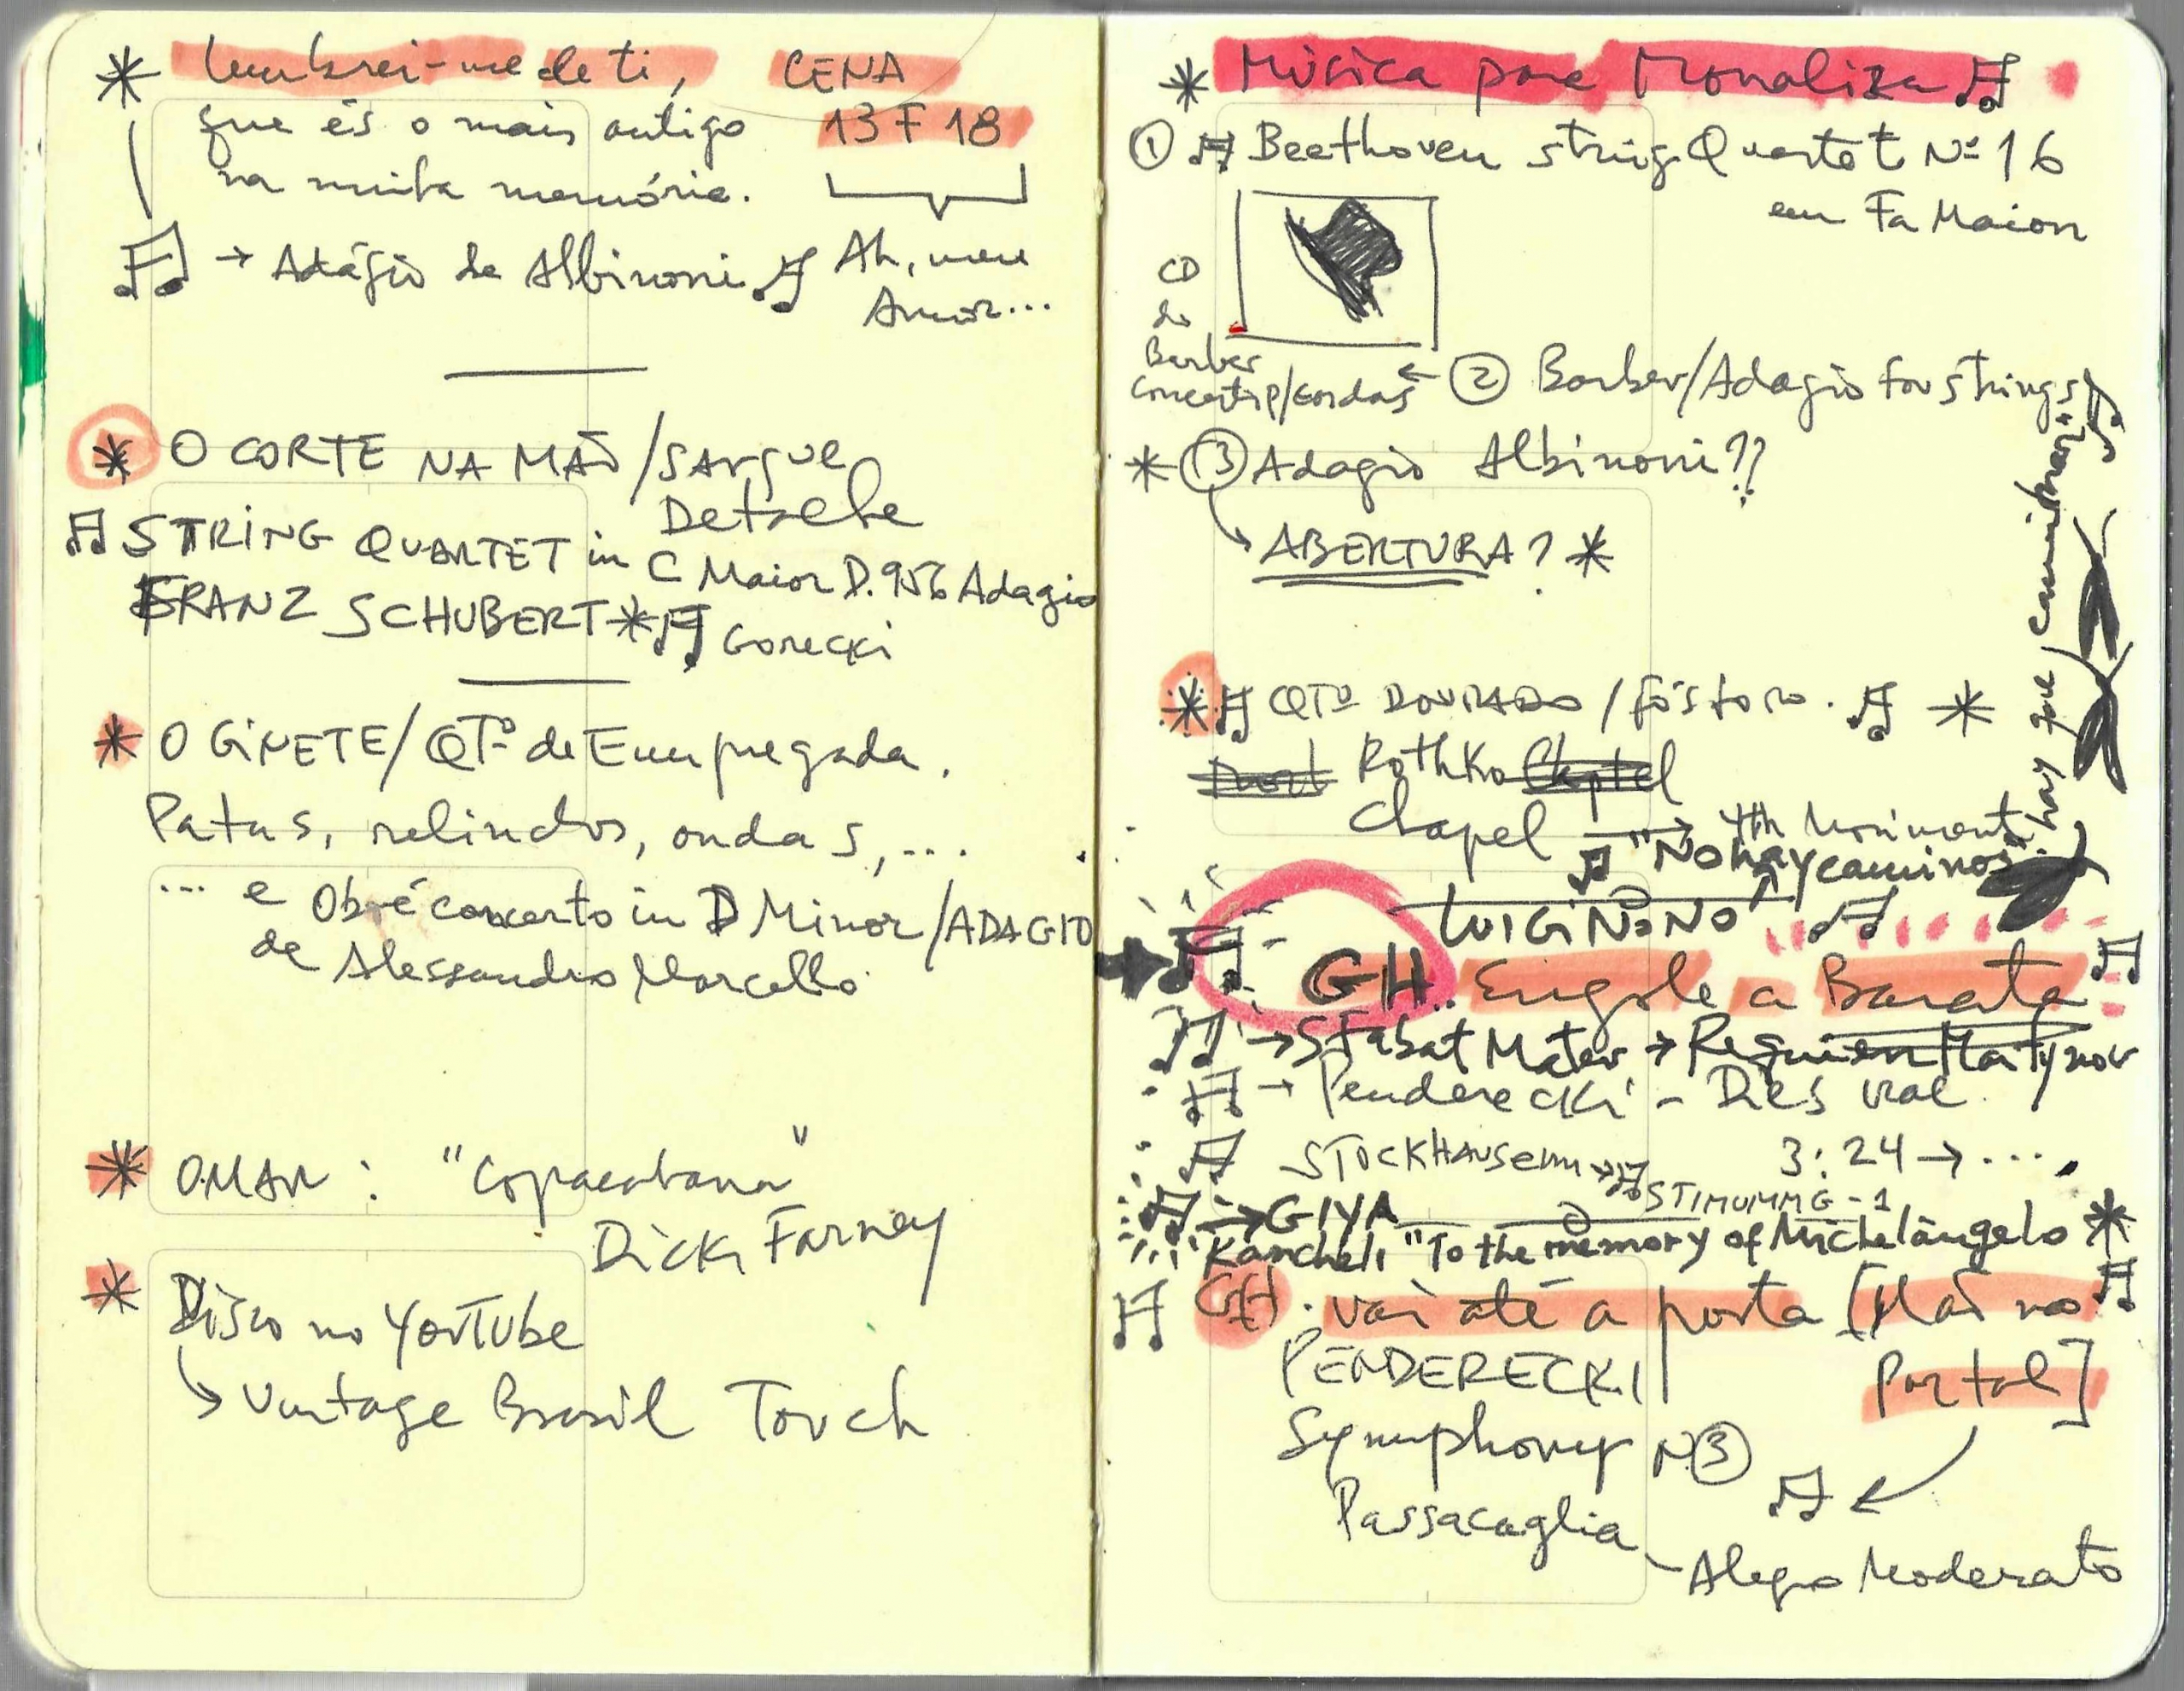 * Lembrei-me de ti, CENA
que és o mais antigo 13 F 18
na minha memória.
→ Adágio de Albinoni Ah, meu
Amor...
* O CORTE NA MÃO/SANgue
Detache
STRING QUARTET in C Maior D.956 Adagio
FRANZ SCHUBERT * Gorecki
* O GINETE/QTº de Empregada.
Patas, relinchos, ondas,...
... e Oboé concerto in D Minor/ADAGIO
de Alessandro Marcello
* OMAR: "Copacabana"
Dick Farney
* Disco no YouTube
↳ Vintage Brasil Torch
* Música para Monaliza
① Beethoven string Quartet Nº 16
em Fa Maior
CD
do
Barber
Concert p/cordas ← ② Barber/Adagio for strings
* ③ Adagio Albinoni??
↳ ABERTURA? *
* QTº DOURADO / fósforo. *
Rothko Chaptel
Chapel → 4th Moviment
"No hay caminos. hay que caminhar"
LUIGI NONO
GH.. Engole a Barata
→ Stabat Mater → Requiem Martynov
→ Penderecki - Dies irae
STOCKHAUSEMM → STIMUMMG-1 3:24 → ....
→ GIYA
Kancheli "To the memory of Michelângelo *
GH. vai até a porta [Mão no
Portal]
PENDERECKI
Symphony N③
Passacaglia - Alegro Moderato